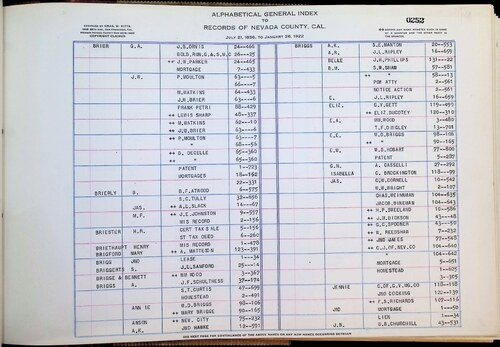 ALPHABETICAL GENERAL INDEX
TO
RECORDS OF NEVADA COUNTY, CAL.
JULY 21, 1856, TO JANUARY 29, 1922
0252
BRIER G.A. J.S.ORVIS
GOLD.RUN.G.&S.M.C 26—25
++ J.N.PARKER 24—465
MORTGAGE 7—433
J.R. P.MOULTON 63—5
66—7
M.WATKINS 64—433
J.N.BRIER 63—6
FRANK PETRI 88—429
++ LEWIS SHARP 48—337
++ M.WATKINS 62—10
++ J.W.BRIER 63—6
++ P.MOULTON 63—7
++ " 68—56
++ D. DECELLE 65—360
++ " 65—360
PATENT 1—723
MORTGAGES 18—152
22—331
BRIERLY B. B.F.ATWOOD 6—575
S.G.TULLY 32—656
JAS. ++ A.G.SLACK 14—67
M.F. ++ J.E.JOHNSTON 9—557
MIS RECORD 2—156
BRIESTER H.R. CERT TAX SALE 5—156
ST TAX DEES 6—260
BRIETHAUPT HENRY MIS RECORD 1—478
BRIGFORD MARY ++ A. MATTEHI 123—391
BRIGG JNO LEASE 1—34
BRIGGERTS S. J.L.SANFORD 25—14
BRIGGE & BENNETT ++ NN HOCO 3—367
BRIGGS A. J.F.SCHULTHESS 37—174
G.T.CURTIS 47—699
HOMESTEAD 2—491
ANNIE W.D.BRIGGS 98—106
++ MARY BRIGGS 98—165
ANSON ++ NEV. CITY 75—232
A.K. JNO HAWKE 12—551
BRIGGS A.K. S.E.MANTON 20—553
A.R. J.L.RIPLEY 16—659
BELLE J.H.PHILLIPS 131—22
B.W. E.N.SHAW 57—581
++ " 58—13
POW ATTY 2—561
NOTICE ACTION 2—561
E. J.L.RIPLEY 16—659
ELIZ. G.Y.GETT 119—495
++ ELIZ.DUCOTEY 120—310
E.A. WM.ROOD 3—460
T.F.DINGLEY 13—701
E.E. W.D.BRIGGS 98—106
++ " 98—165
E.W. W.S.HOBART 77—800
PATENT 5—287
G.N. A.CASSELLI 27—292
ISABELLA C. BROCKINGTON 118—99
JAS. GEO.M.CORNELL 10—542
H.H.KNIGHT 2—107
CHAS.REINMAN 104—635
JACOB.NINEMAN 104—641
++ H.P.SHELAND 10—586
++ J.W.DICKSON 43—48
++ G.C.SPOONER 43—50
++ B. REEDSHAW 7—432
++ JNO JAMES 77—548
++ C.J.OF.NEV.CO 104—640
++ " 104—642
MORTGAGE 5—451
HOMESTEAD 1—625
3—305
JENNIE C.OF.G.Y.NG.CO 118—118
JNO DECKING 122—139
++ F.S.RICHARDS 107—116
JNO MORTGAGE 1—92
LIEN 1—34
J.B. N.D.CHURCHILL 43—531